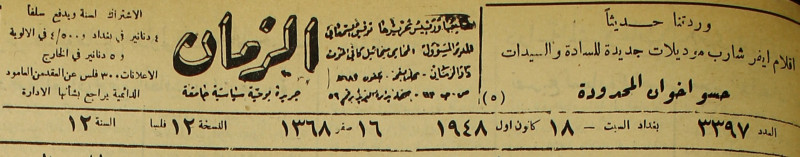 وردتنا حديثاً
اقلام ايفر شارب موديلات جديدة للسادة والسيدات
حسو اخوان المحدودة
(٥)
صاحبها ورئيس تحريرها توفيق السمعاني
المدير المسؤول
الزمان
جريدة يومية سياسية جامعة
الاشتراك لسنة ويدفع سلفاً
٤ دنانير في بغداد و ٤/٥٠٠ في الالوية
و ٥ دنانير في الخارج
الاعلانات ٣٠٠ فلس عن العقد من العامود
الدائمية يراجع بشأنها الادارة
العدد ٣٣٩٧ بغداد السبت – ١٨ كانون اول ١٩٤٨ ١٦ صفر ١٣٦٨ النسخة ١٢ فلسا السنة ١٢